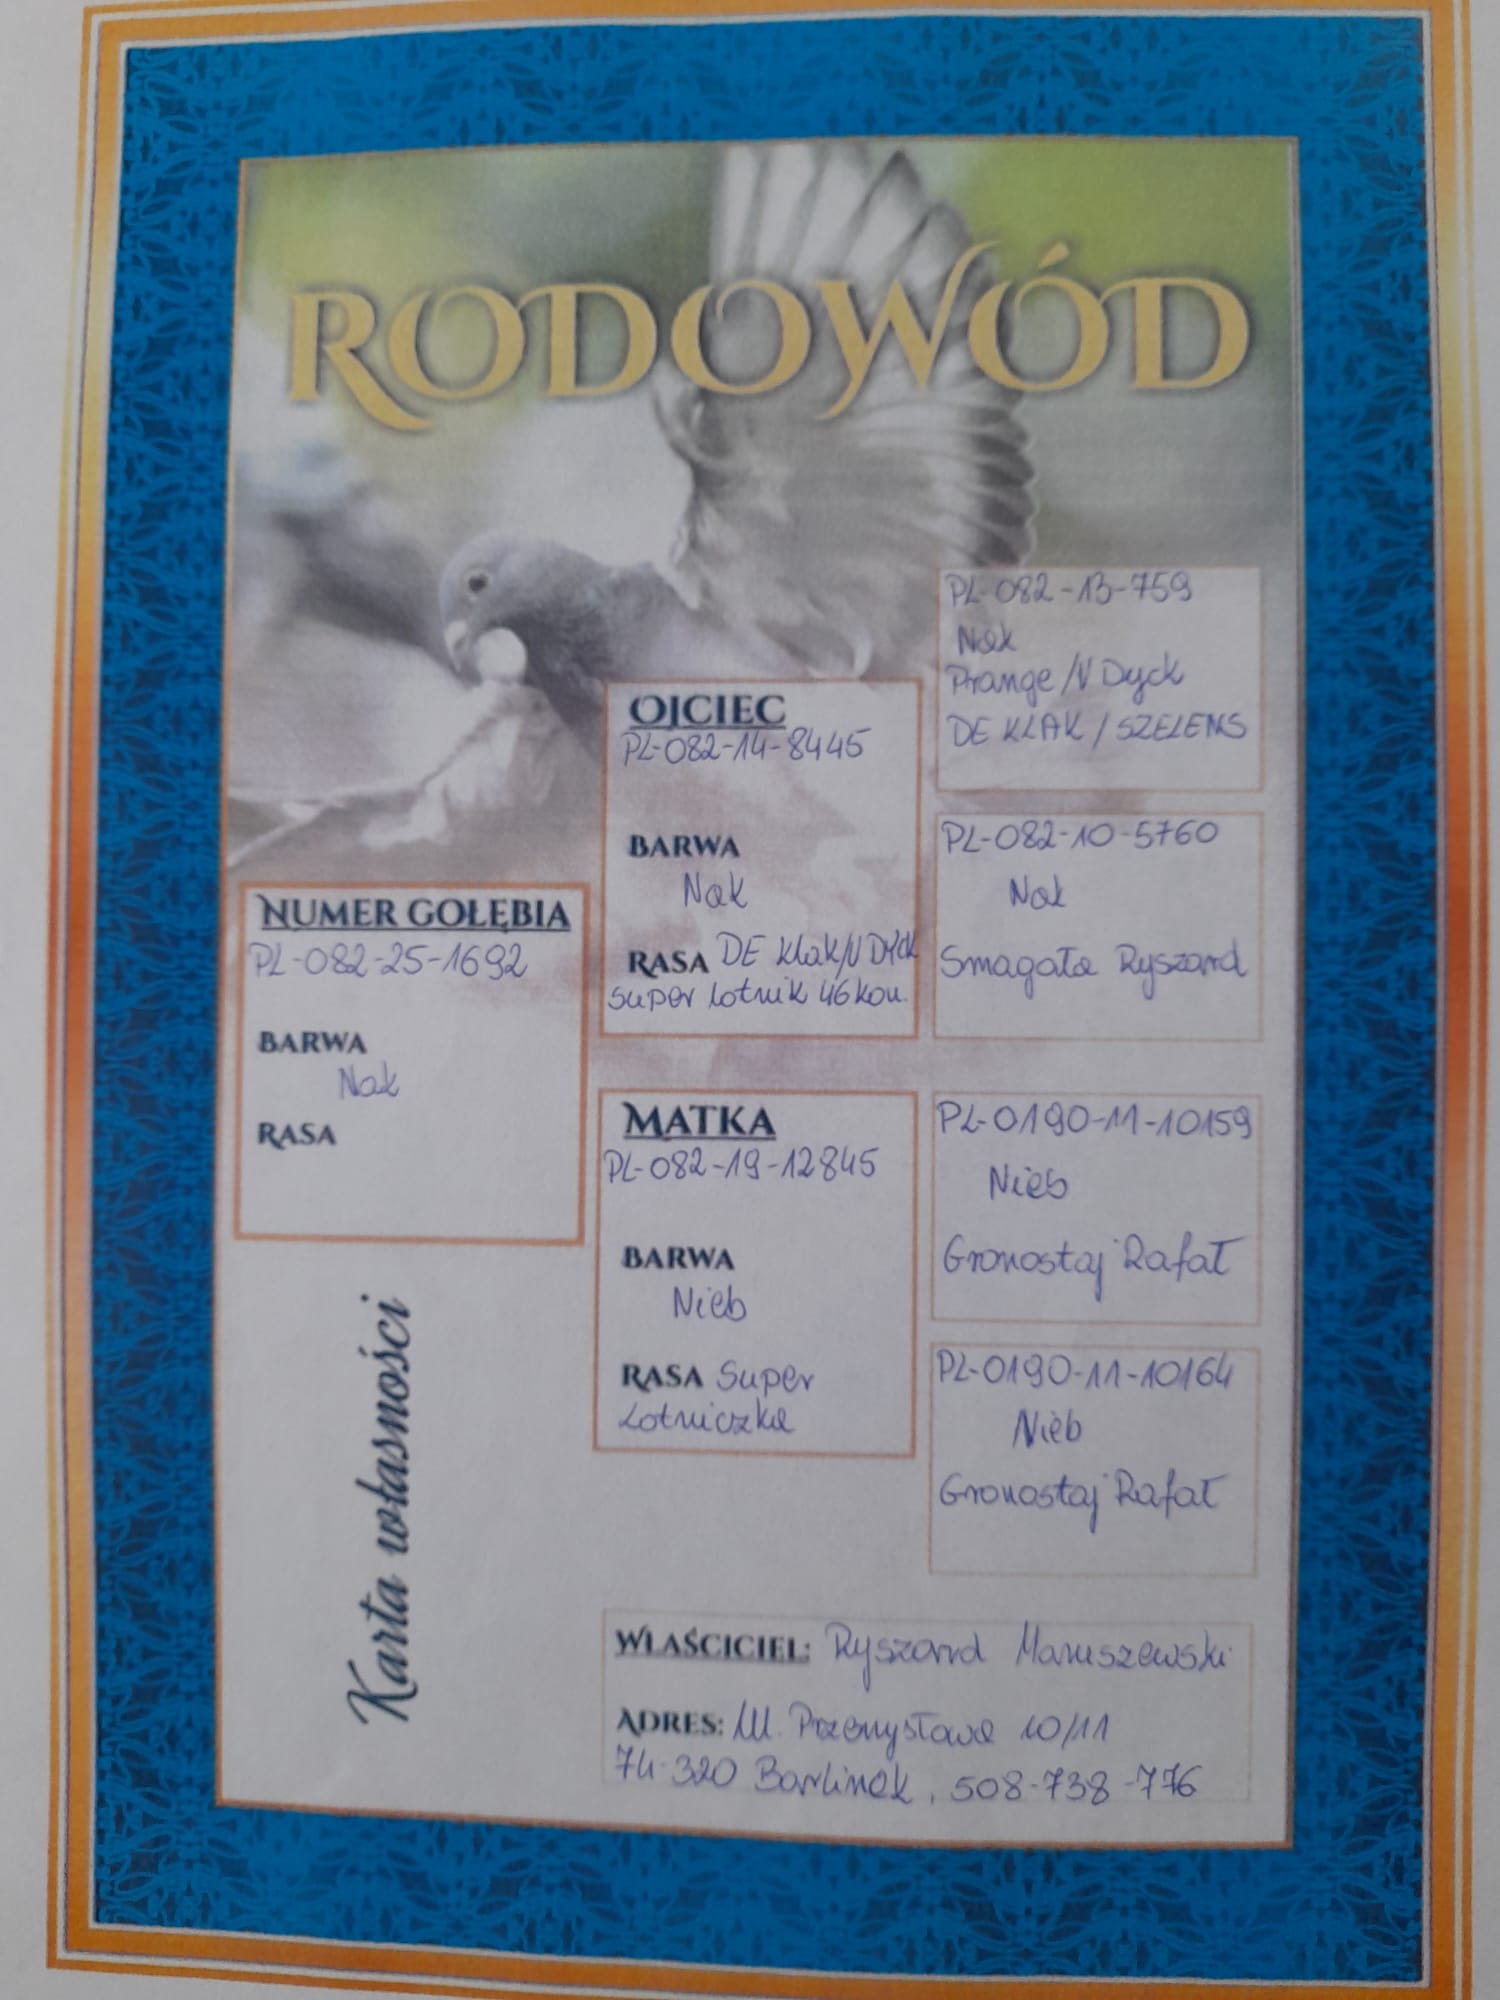 RODOWÓD
NUMER GOŁĘBIA
PL-082-25-1692
BARWA
Nak
RASA
OJCIEC
PL-082-14-8445
BARWA
Nak
RASA DE Klak/V Dyck
super lotnik 46 kon.
MATKA
PL-082-19-12845
BARWA
Nieb
RASA Super
Lotniczka
PL-082-13-759
Nak
Prange/V Dyck
DE KLAK / SZELENS
PL-082-10-5760
Nak
Smagała Ryszard
PL-0190-11-10159
Nieb
Gronostaj Rafał
PL-0190-11-10164
Nieb
Gronostaj Rafał
Karta własności
WŁAŚCICIEL: Ryszard Maruszewski
ADRES: Ul. Przemysława 10/11
74-320 Barlinek, 508-738-776